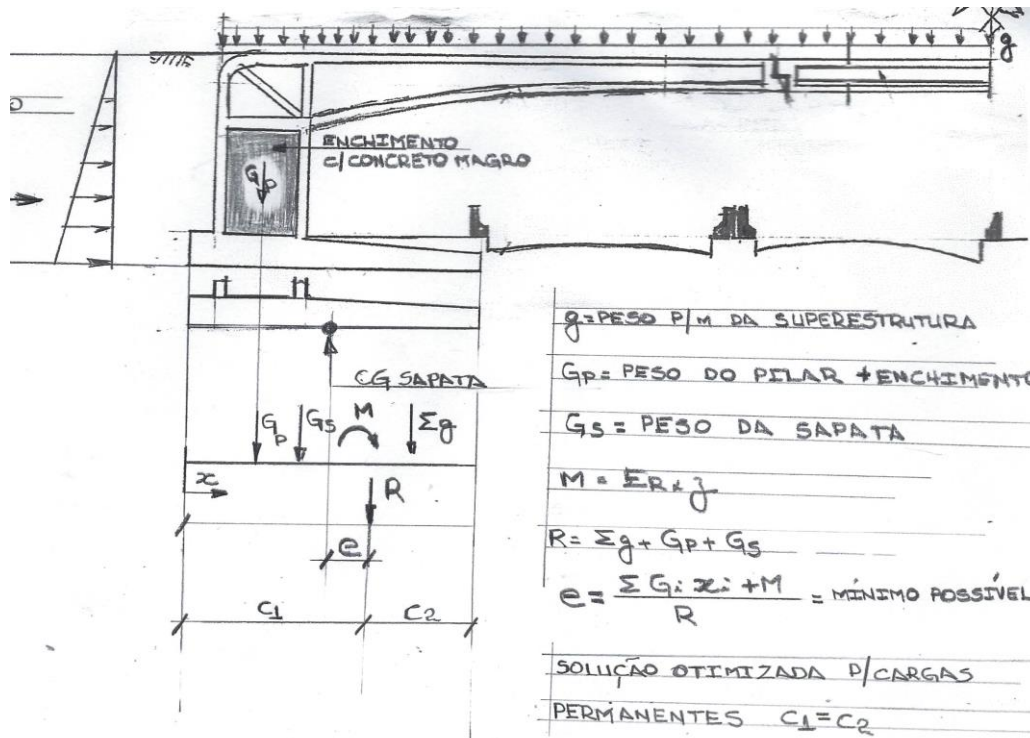 g
ENCHIMENTO
C/CONCRETO MAGRO
Gp
CG SAPATA
Gp
Gs
M
Σg
x
R
e
C1
C2
g=PESO P/M DA SUPERESTRUTURA
Gp= PESO DO PILAR + ENCHIMENTO
Gs= PESO DA SAPATA
M = ER x z
R= Σg + Gp + Gs
e = Σ Gi xi + M / R = MÍNIMO POSSÍVEL
SOLUÇÃO OTIMIZADA P/CARGAS
PERMANENTES C1=C2